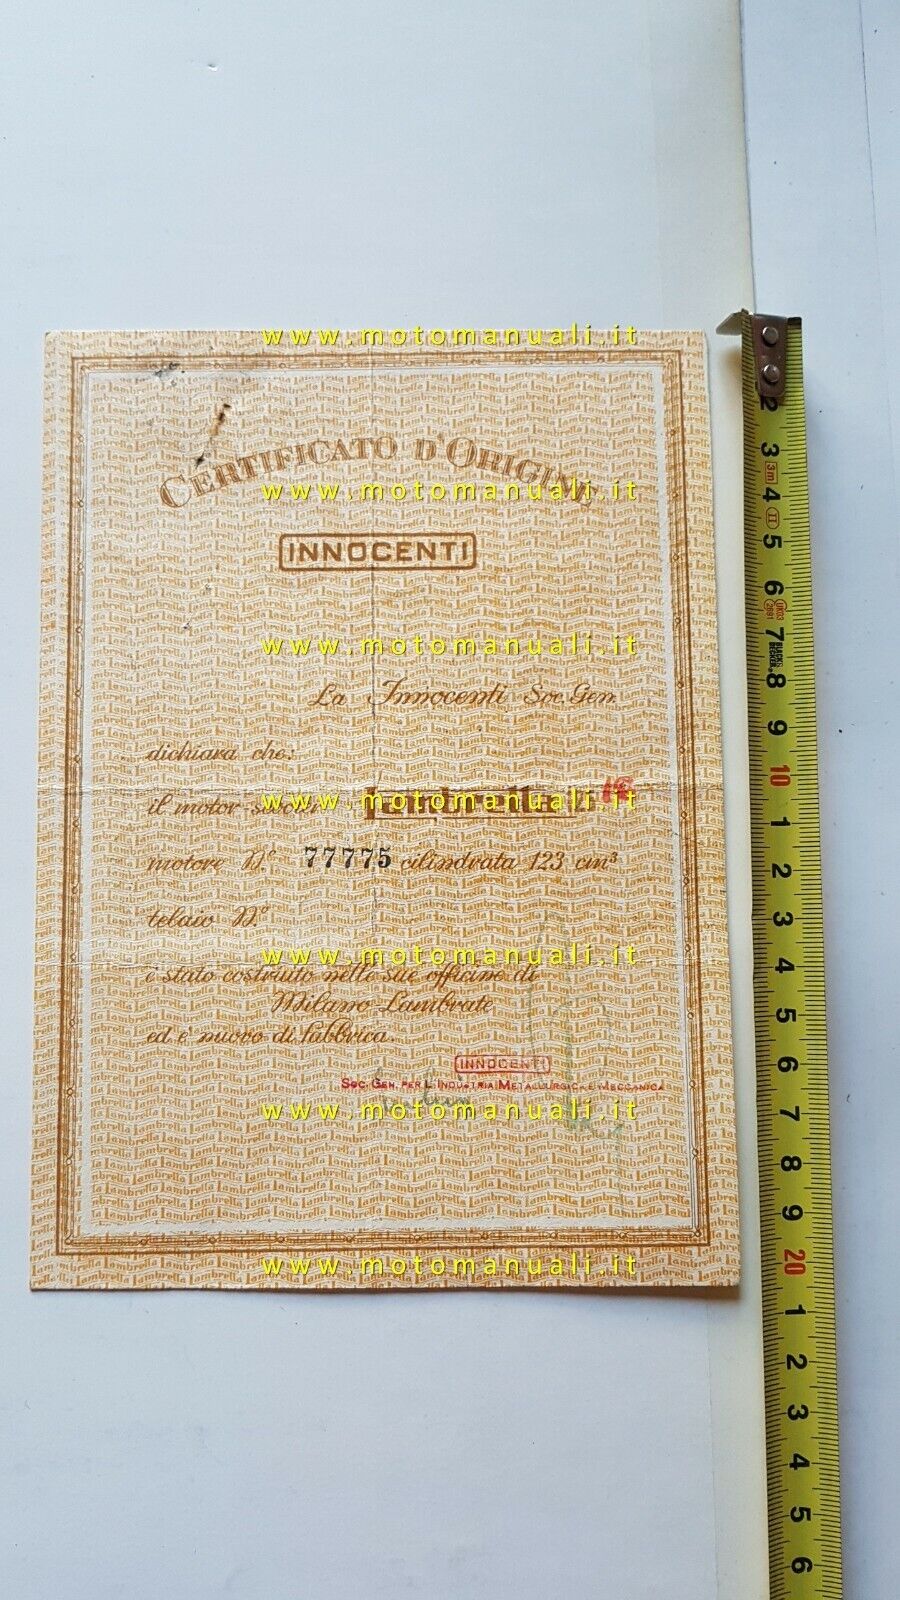 www.motomanuali.it
CERTIFICATO D'ORIGINE
www.motomanuali.it
INNOCENTI
www.motomanuali.it
La Innocenti Soc. Gen.
dichiara che:
il motor-scooter Lambretta
www.motomanuali.it
motore N.º 77775 cilindrata 123 cm³
telaio N.º
www.motomanuali.it
è stato costruito nelle sue officine di
Milano-Lambrate
ed è nuovo di fabbrica.
INNOCENTI
SOC. GEN. PER L'INDUSTRIA METALLURGICA E MECCANICA
www.motomanuali.it
www.motomanuali.it
2
3
3m
4
II
5
6
7
BLACK& DECKER
8
9
10
1
2
3
4
5
6
7
8
9
20
1
2
3
4
5
6